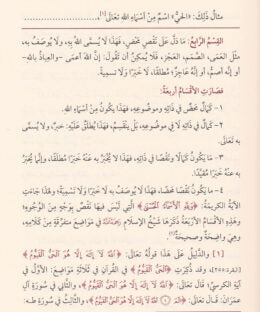 مثال ذلك: «الحي» اسم من أسماء الله تعالى[١].
القسم الرابع: ما دل على نقص محض، فهذا لا يسمى الله به، ولا يوصف به،
مثل العمى، الصمم، العجز، فلا يمكن أن تقول: إن الله أعمى -والعياذ بالله-
أو إنه أصم، أو إنه عاجز؛ مطلقا، لا خبرا ولا تسمية.
فصارت الأقسام أربعة:
١- كمال محض في ذاته وموضوعه، فهذا يسمى الله به ويوصف به.
٢- كمال في ذاته لا في موضوعه، بل ينقسم، فهذا يطلق عليه خبرا، ولا يسمى به
به تعالى.
٣- ما يكون كمالا ونقصا في ذاته، فهذا لا يخبر به عنه خبرا مطلقا، وإنما يخبر به
عنه خبرا مقيدا.
٤- ما يكون نقصا محضا، فهذا لا يوصف به لا خبرا ولا تسمية؛ وهذا جاءت
الآية الكريمة: ﴿ولله الأسماء الحسنى﴾ التي ليس فيها نقص بوجه من الوجوه؛
وهذه الأقسام الأربعة ذكرها شيخ الإسلام في مواضع متفرقة من كلامه،
وهي واضحة وصحيحة.
[١] والدليل على هذا قوله تعالى: ﴿الله لا إله إلا هو الحي القيوم﴾
[البقرة:٢٥٥]، وقد ذكرت ﴿الحي القيوم﴾ في القرآن في ثلاثة مواضع: الأول في
آية الكرسي؛ قال تعالى: ﴿الله لا إله إلا هو الحي القيوم﴾، والثاني في سورة آل
عمران: قال تعالى: ﴿الم ۝ الله لا إله إلا هو الحي القيوم﴾، والثالث في سورة طه: